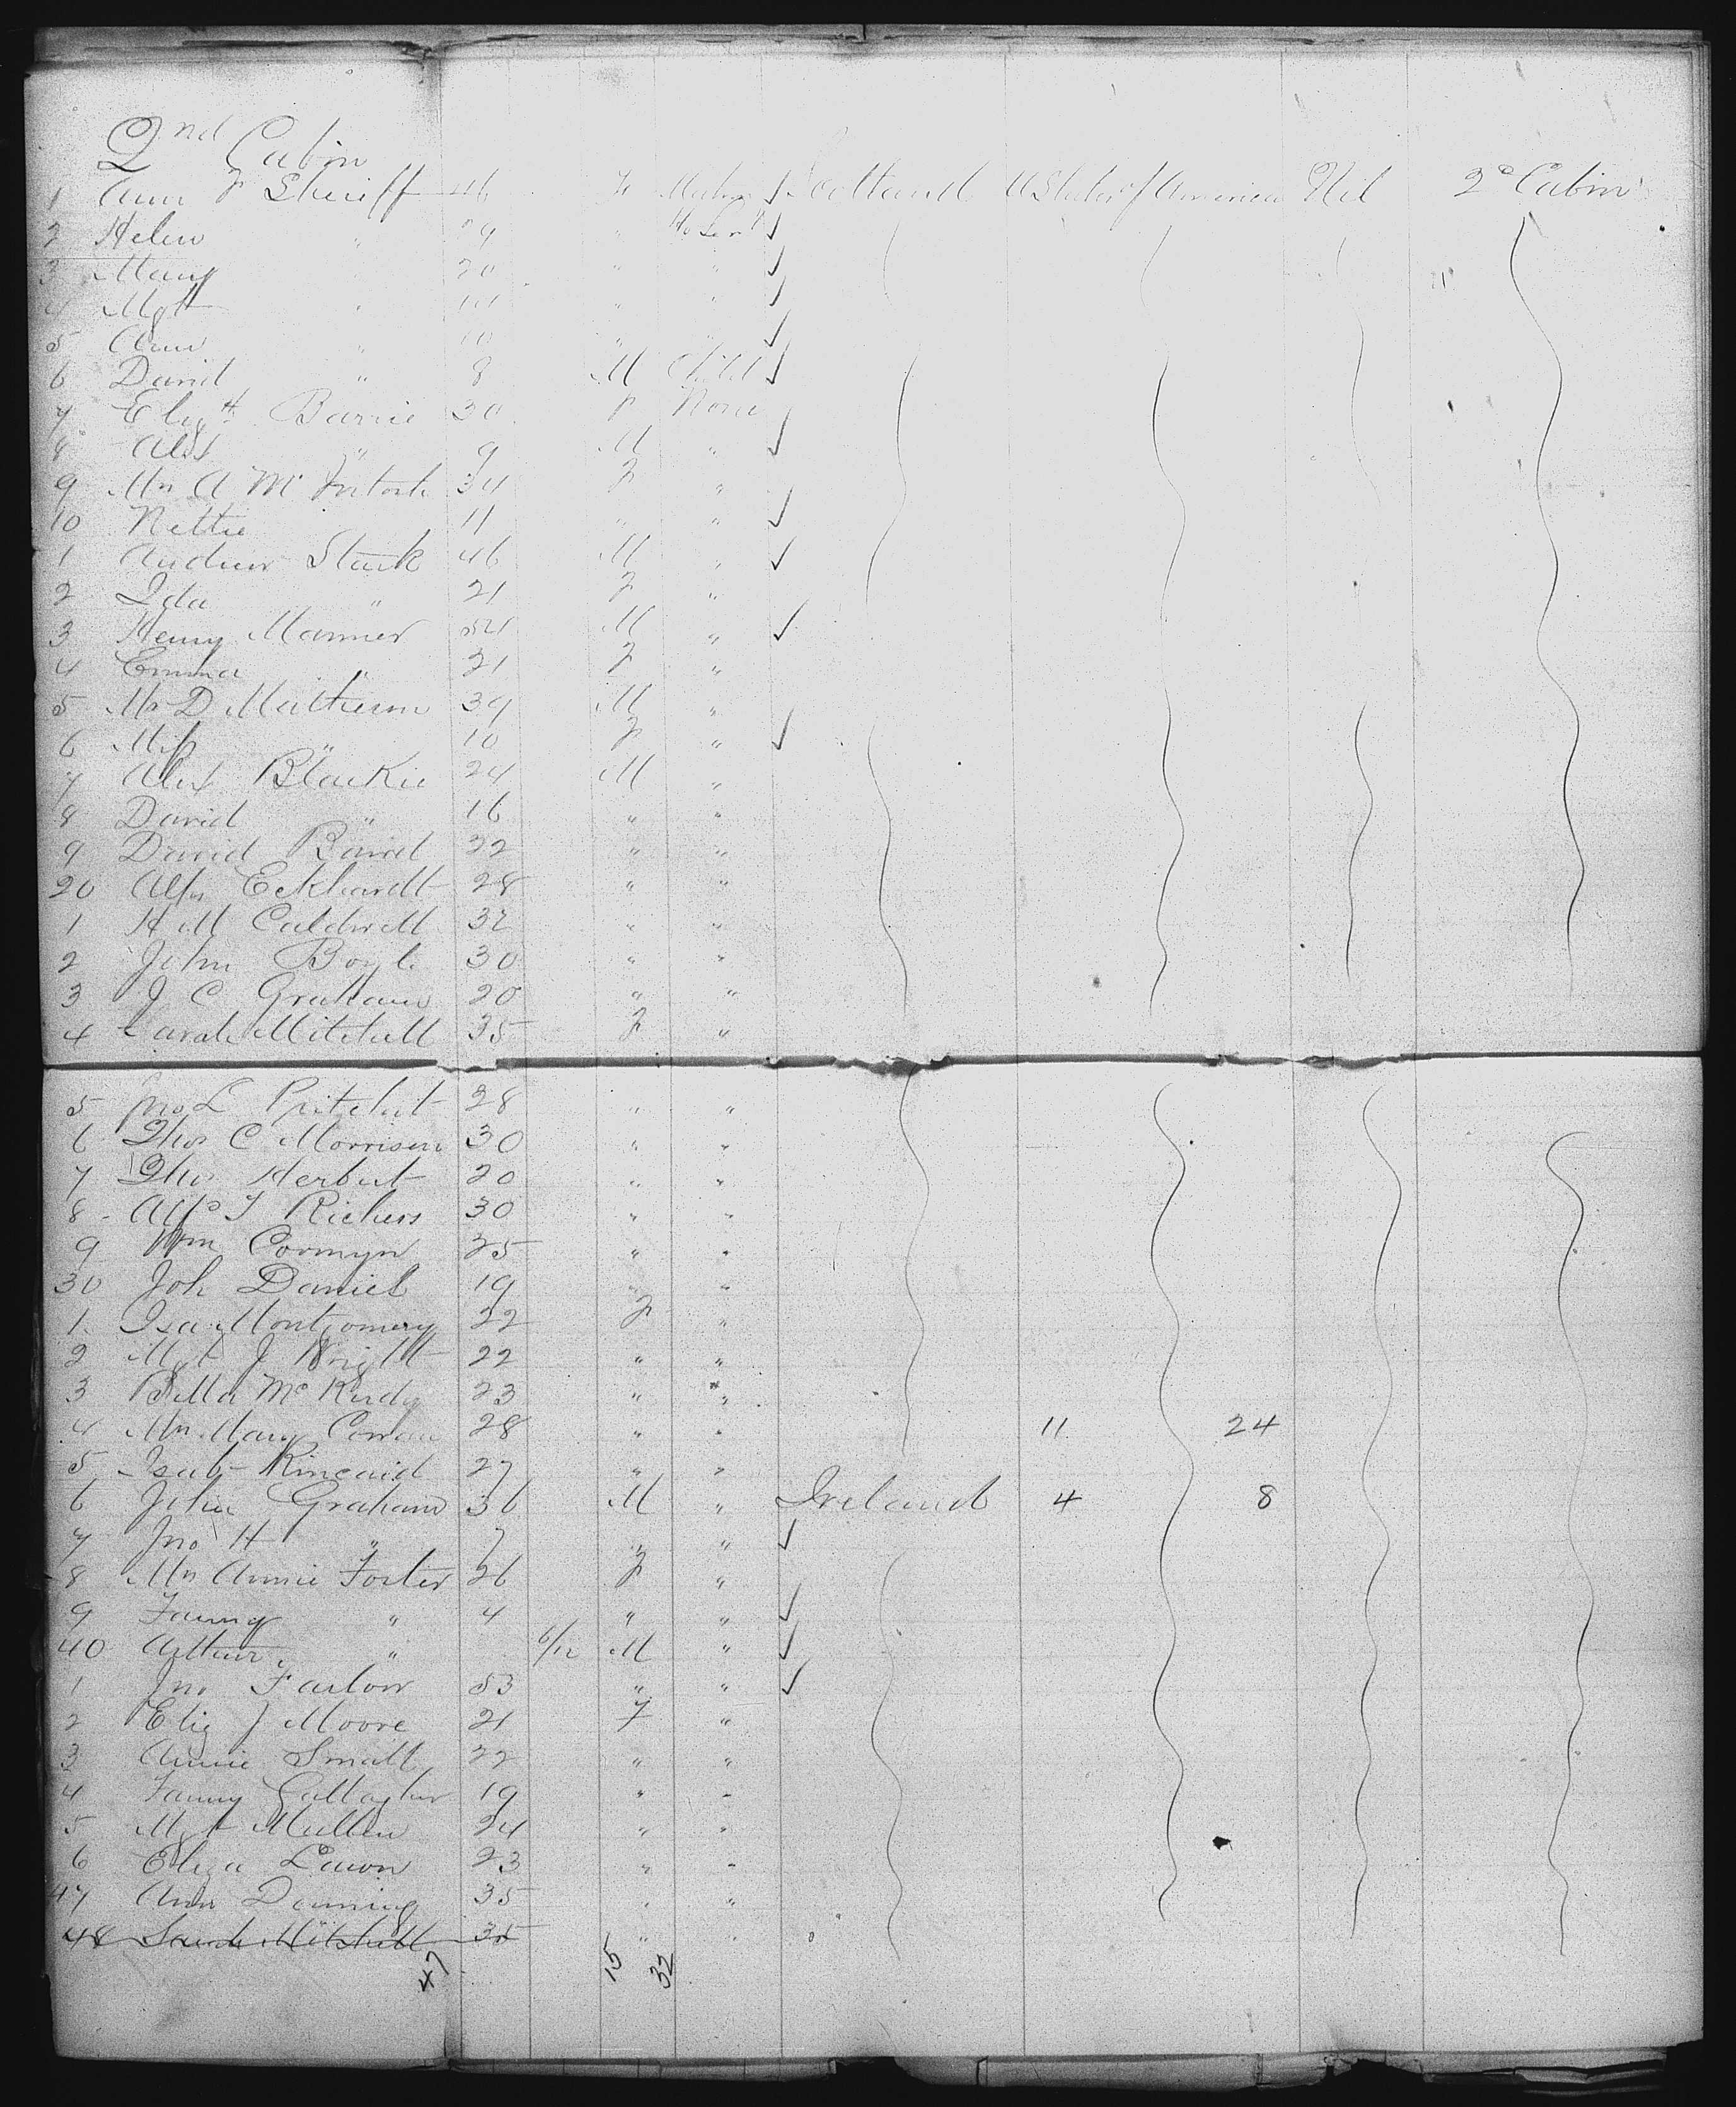 2nd Cabin
1 Ann F Sheriff 46 F Matron Scotland U States of America Nil 2º Cabin
2 Helen " 24 " Ho Servt
3 Mary 20 " "
4 Mgt " "
5 Ann 10 " "
6 David " 8 M Child
7 Elizth Barrie 30 F None
8 Alex " 9 M "
9 Mrs A McIntosh 34 F "
10 Nettie 11 " "
1 Andrew Stark 46 M "
2 Ida " 21 F "
3 Henry Manner M "
4 Emma " 21 F "
5 Mr D Matheson 39 M "
6 Miss " 10 F "
7 Alex Blackie 24 M "
8 David " 16 " "
9 David Baird 32 " "
20 Alfr Eckhardt 28 " "
1 H M Caldwell 32 " "
2 John Boyle 30 " "
3 J C Graham 20 " "
4 Sarah Mitchell 35 F "
5 Jno L Pritchet 28 " "
6 Thos C Morrison 30 " "
7 Thos Herbert 20 " "
8 Alfd J Richers 30 " "
9 Wm Cormyn 25 " "
30 Joh Daniel 19 " "
1 Isa Montgomery 22 F "
2 Mgt J Wright 22 " "
3 Bella McKirdy 23 " "
4 Mrs Mary Cowan 28 " " 11 24
5 Isab Kincaid 27 " "
6 John Graham 36 M " Ireland 4 8
7 Jno H " 7 " "
8 Mrs Annie Foster 26 F "
9 Fanny " 4 " "
40 Arthur " 6/12 M "
1 Jno Farlow 53 " "
2 Eliz J Moore 21 F "
3 Annie Small 22 " "
4 Fanny Gallagher 19 " "
5 Mgt Mullen 24 " "
6 Eliza 23 " "
47 Ann Downing 35 " "
48 Sarah Mitchell 35 " "
47 15 32